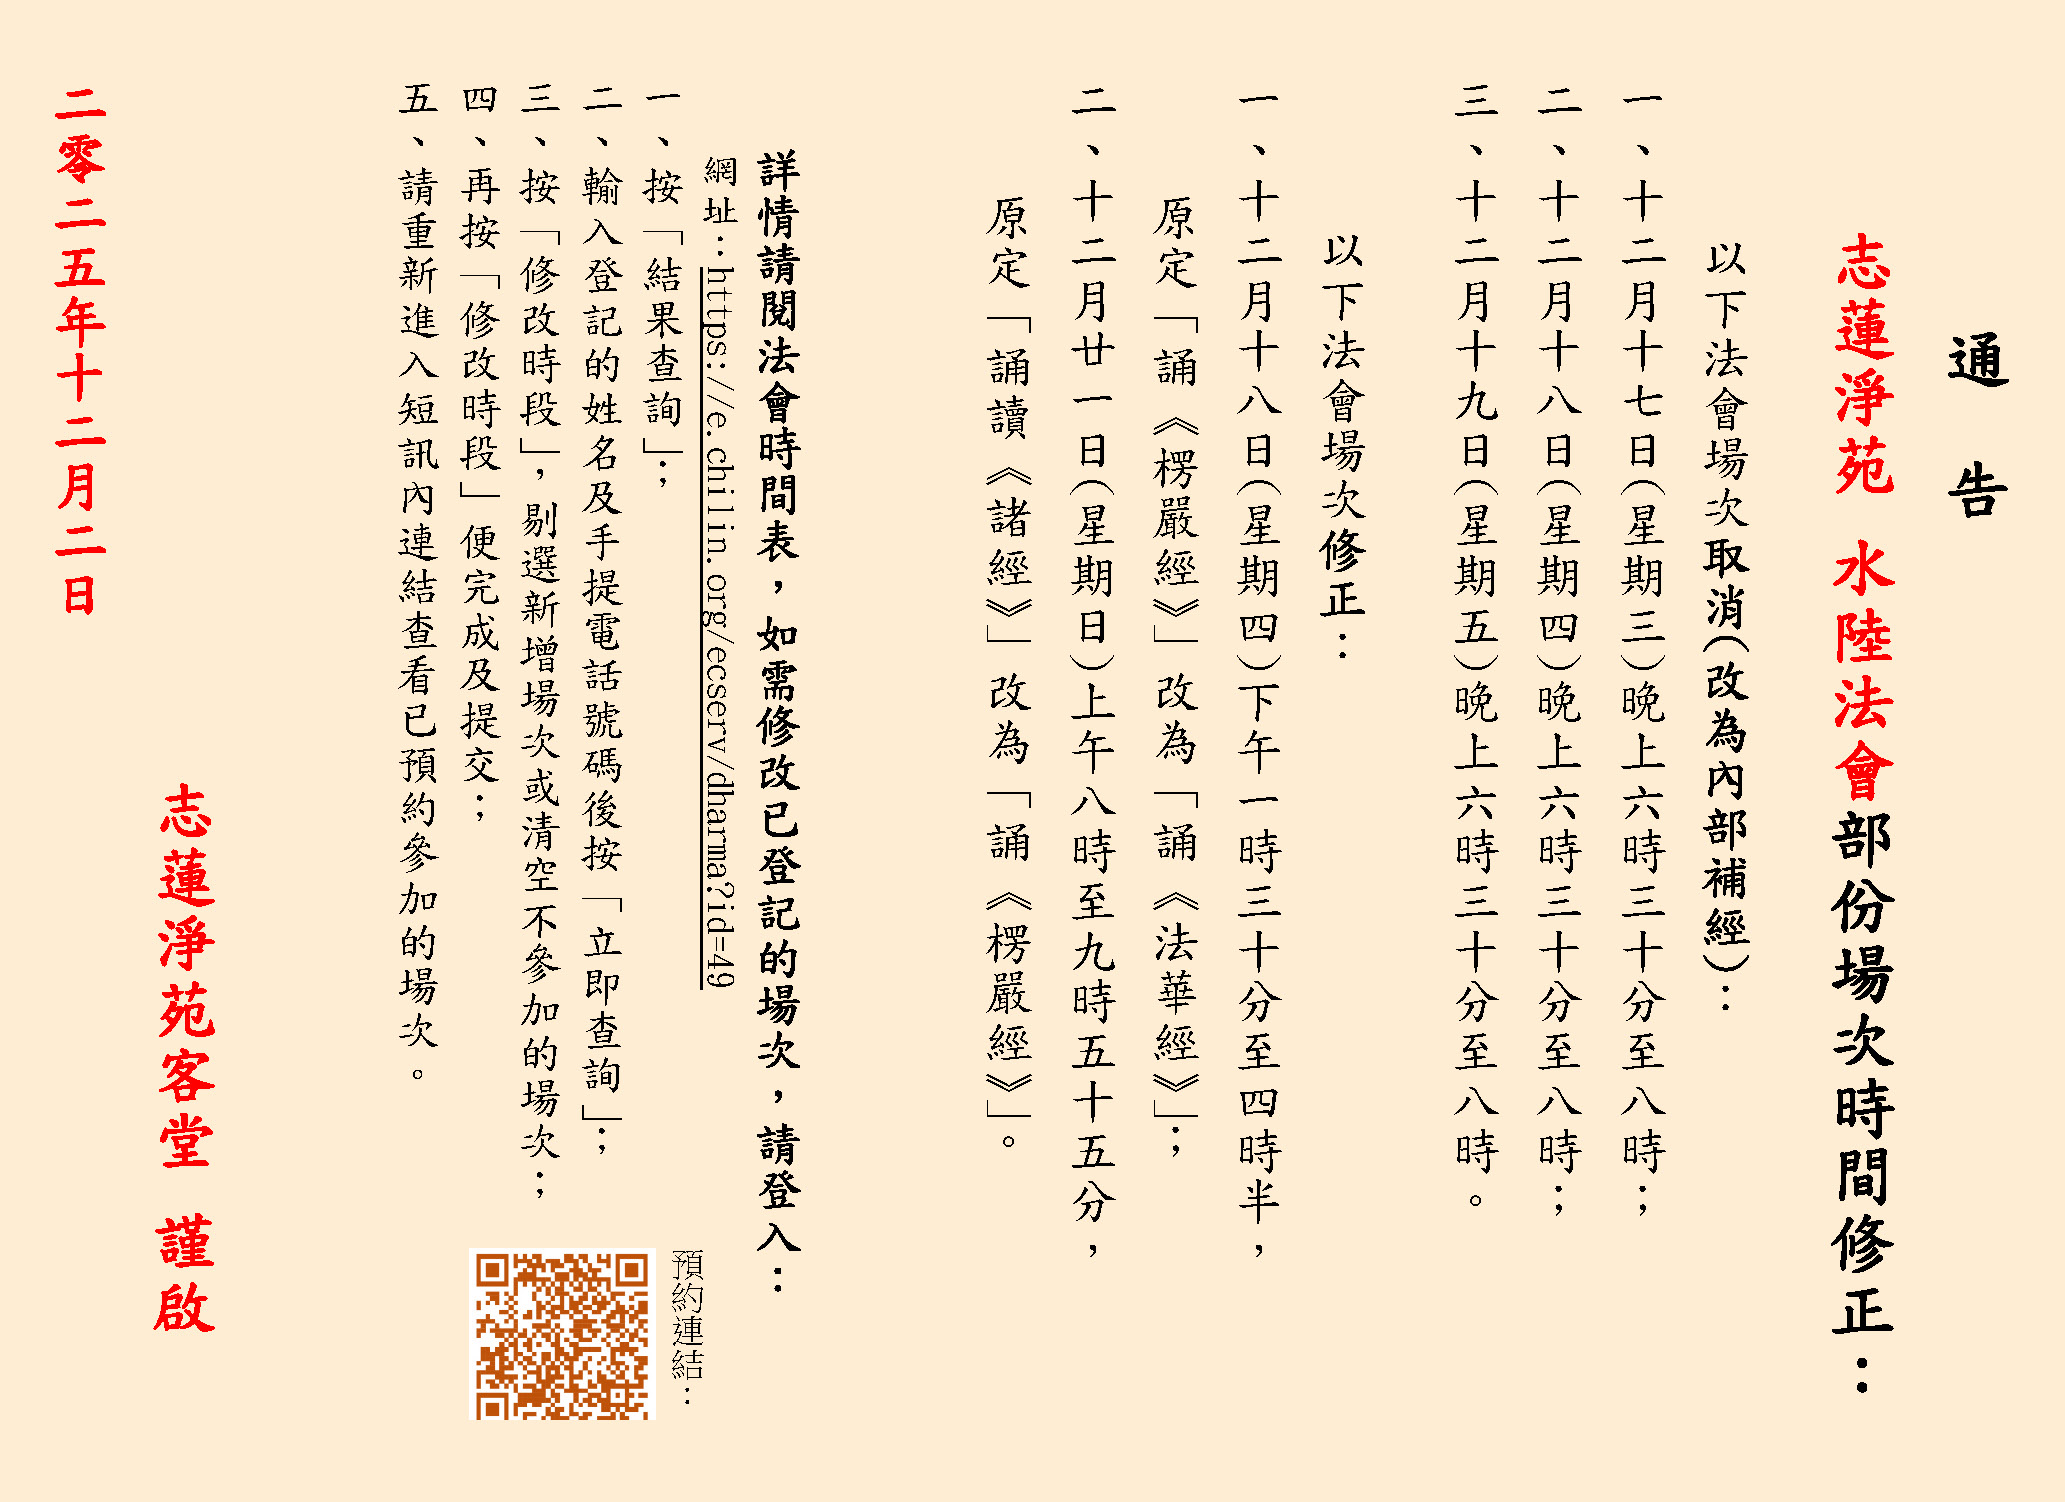 通　告
志蓮淨苑　水陸法會部份場次時間修正：
以下法會場次取消(改為內部補經)：
一、十二月十七日(星期三)晚上六時三十分至八時；
二、十二月十八日(星期四)晚上六時三十分至八時；
三、十二月十九日(星期五)晚上六時三十分至八時。
以下法會場次修正：
一、十二月十八日(星期四)下午一時三十分至四時半，
原定「誦《楞嚴經》」改為「誦《法華經》」；
二、十二月廿一日(星期日)上午八時至九時五十五分，
原定「誦讀《諸經》」改為「誦《楞嚴經》」。
詳情請閱法會時間表，如需修改已登記的場次，請登入：
網址：https://e.chilin.org/ecserv/dharma?id=49
預約連結：
一、按「結果查詢」；
二、輸入登記的姓名及手提電話號碼後按「立即查詢」；
三、按「修改時段」，剔選新增場次或清空不參加的場次；
四、再按「修改時段」便完成及提交；
五、請重新進入短訊內連結查看已預約參加的場次。
志蓮淨苑客堂　謹啟
二零二五年十二月二日